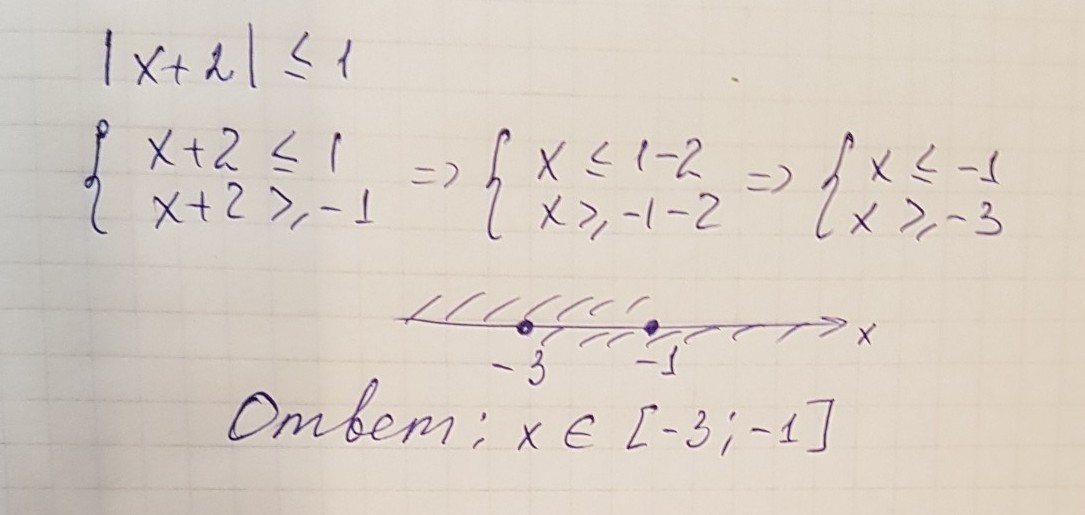 |x+2| ≤ 1
{ x+2 ≤ 1 => { x ≤ 1-2 => { x ≤ -1
x+2 ≥ -1 x ≥ -1-2 x ≥ -3
-3 -1 x
Ответ: x ∈ [-3; -1]